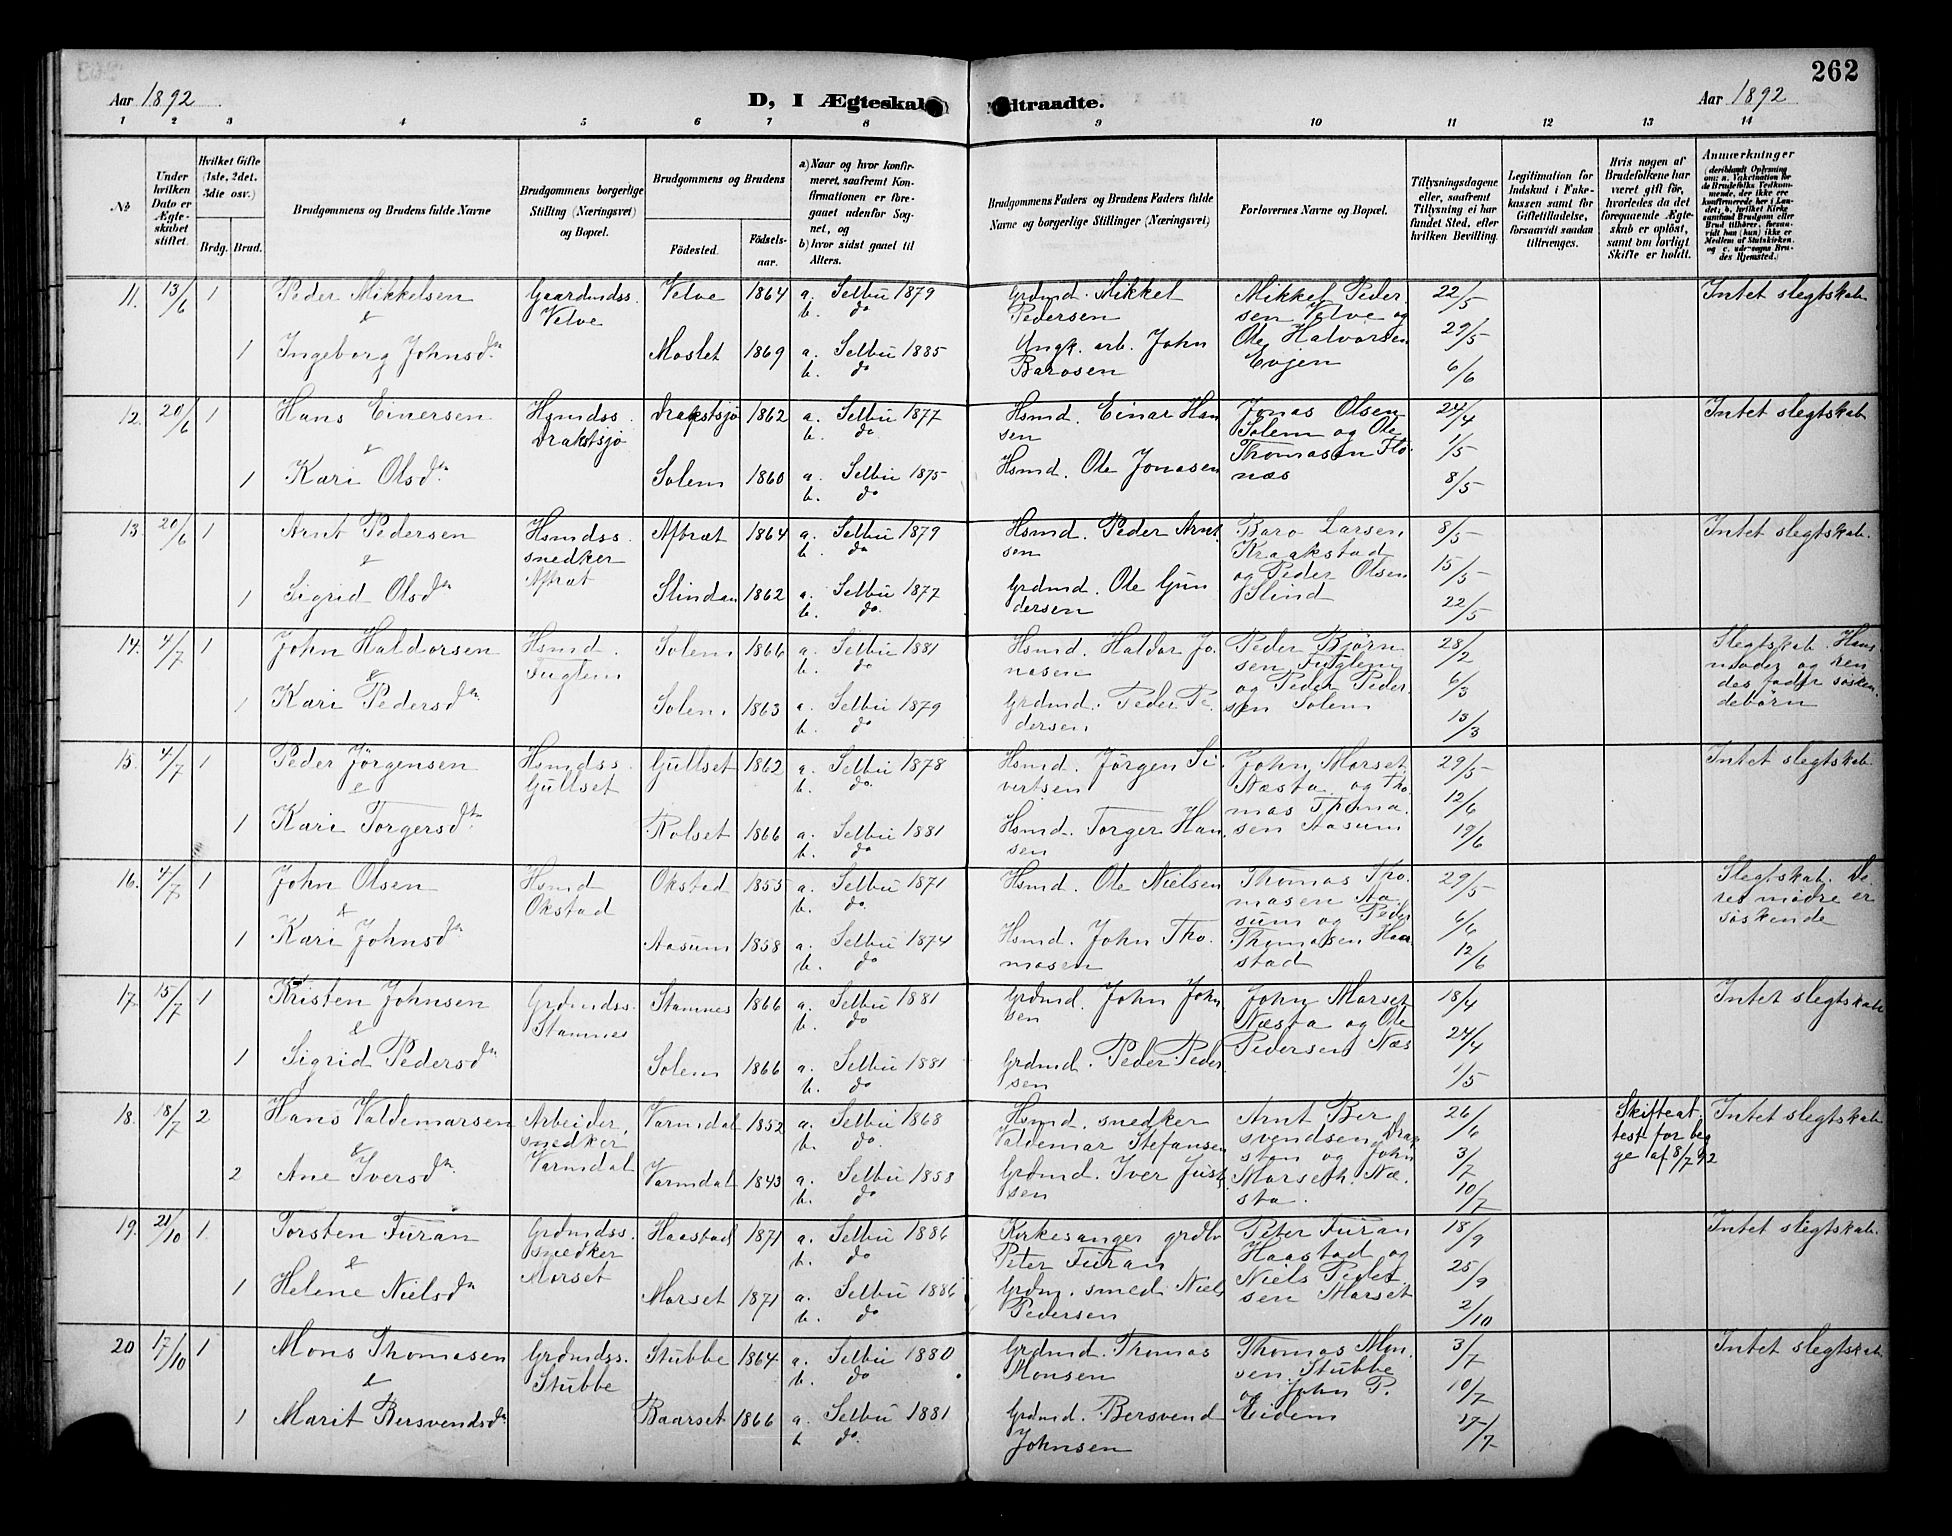 262
Aar 1892 D, I Ægteskab Indtraadte. Aar 1892
1 2 3 4 5 6 7 8 9 10 11 12 13 14
№
Under hvilken Dato er Ægteskabet stiftet.
Hvilket Gifte (1ste, 2det. 3die osv.)
Brdg. Brud.
Brudgommens og Brudens fulde Navne
Brudgommens borgerlige Stilling (Næringsvei) og Bopæl.
Brudgommens og Brudens
Fødested. Fødselsaar.
a) Naar og hvor konfirmeret, saafremt Konfirmationen er foregaaet udenfor Sognet, og
b) hvor sidst gaaet til Alters.
Brudgommens Faders og Brudens Faders fulde Navne og borgerlige Stillinger (Næringsvei)
Forlovernes Navne og Bopæl.
Tillysningsdagene eller, saafremt Tillysning ei har fundet Sted, efter hvilken Bevilling.
Legitimation for Indskud i Fakekassen samt for Giftetilladelse, forsaavidt saadan tiltrænges.
Hvis nogen af Brudefolkene har været gift før, hvorledes da det foregaaende Ægteskab er opløst, samt om lovligt Skifte er holdt.
Anmærkninger
11. 13/6 1 Peder Mikkelsen Gaardmdss. Velve Velve 1864 a. Selbu 1879 b. do Grdmd. Mikkel Pedersen Mikkel Pedersen Velve og 22/5 Intet slegtskab
&
1 Ingeborg Johnsdtr Moslet 1869 a. Selbu 1885 b. do Ungk. arb. John Barosen Ole Halvorsen Evjen 29/5 6/6
12. 20/6 1 Hans Einersen Hsmdss. Drakstsjø Drakstsjø 1862 a. Selbu 1877 b. do Hsmd. Einar Hansen Jonas Olsen Solem og Ole 24/4 Intet slegtskab
&
1 Kari Olsdtr Solem 1860 a. Selbu 1875 b. do Hsmd. Ole Jonasen Thomasen Flonæs 1/5 8/5
13. 20/6 1 Arnt Pedersen Hsmdss. snedker Aftræt Aftræt 1864 a. Selbu 1879 b. do Hsmd. Peder Arntsen Baro Larsen Kraakstad 8/5 Intet slegtskab.
&
1 Sigrid Olsdtr Slindan 1862 a. Selbu 1877 b. do Grdmd. Ole Gundersen og Peder Olsen Slind 15/5 22/5
14. 4/7 1 John Haldorsen Hsmd. Fuglem Solem 1866 a. Selbu 1881 b. do Hsmd. Haldor Jonasen Peder Bjørnsen Fuglem 28/2 Slegtskab. Hans moder og hendes fader søskendebørn
&
1 Kari Pedersdtr Solem 1863 a. Selbu 1879 b. do Grdmd. Peder Pedersen og Peder Pedersen Solem 6/3 13/3
15. 4/7 1 Peder Jörgensen Hsmdss. Gullset Gullset 1862 a. Selbu 1878 b. do Hsmd. Jörgen Sivertsen John Morset Næsta og Tho 29/5 Intet slegtskab
&
1 Kari Torgersdtr Rolset 1866 a. Selbu 1881 b. do Hsmd. Torger Hansen mas Thomasen Aasum 12/6 19/6
16. 4/7 1 John Olsen Hsmd Okstad Okstad 1855 a. Selbu 1871 b. do Hsmd. Ole Nielsen Thomas Thomasen Aasum og Peder 29/5 Slegtskab. Deres mødre er søskende
&
1 Kari Johnsdtr Aasum 1858 a. Selbu 1874 b. do Hsmd. John Thomasen Thomasen Haastad 6/6 12/6
17. 15/7 1 Kristen Johnsen Grdmdss. Stamnes Stamnes 1866 a. Selbu 1881 b. do Grdmd. John Johnsen John Morset Næsta og Ole 18/4 Intet slegtskab
&
1 Sigrid Pedersdtr Solem 1866 a. Selbu 1881 b. do Grdmd. Peder Pedersen Pedersen Næs 24/4 1/5
18. 18/7 2 Hans Valdemarsen Arbeider, snedker Varmdal Varmdal 1852 a. Selbu 1868 b. do Hsmd. snedker Valdemar Stefansen Arnt Bersvendsen 26/6 Skifteattest for begge af 8/7 92 Intet slegtskab
&
2 Ane Iversdtr Varmdal 1843 a. Selbu 1858 b. do Grdmd. Iver og John Morseth. Næsta. 3/7 10/7
19. 21/10 1 Torsten Furan Grdmdss. snedker Morset Haastad 1871 a. Selbu 1886 b. do Kirkesanger grdbr Peter Furan Peter Furan Haastad og 18/9 Intet slegtskab.
&
1 Helene Nielsdtr Morset 1871 a. Selbu 1886 b. do Grdm. smed Niels Pedersen Niels Pedersen Morset 25/9 2/10
20 17/10 1 Mons Thomasen Grdmdss. Stubbe Stubbe 1864 a. Selbu 1880 b. do Grdmd. Thomas Monsen Thomas Monsen Stubbe 3/7 Intet slegtskab.
&
1 Marit Bersvendsdtr Baarset 1866 a. Selbu 1881 b do Grdmd. Bersvend Johnsen og John P. Eidem 10/7 17/7